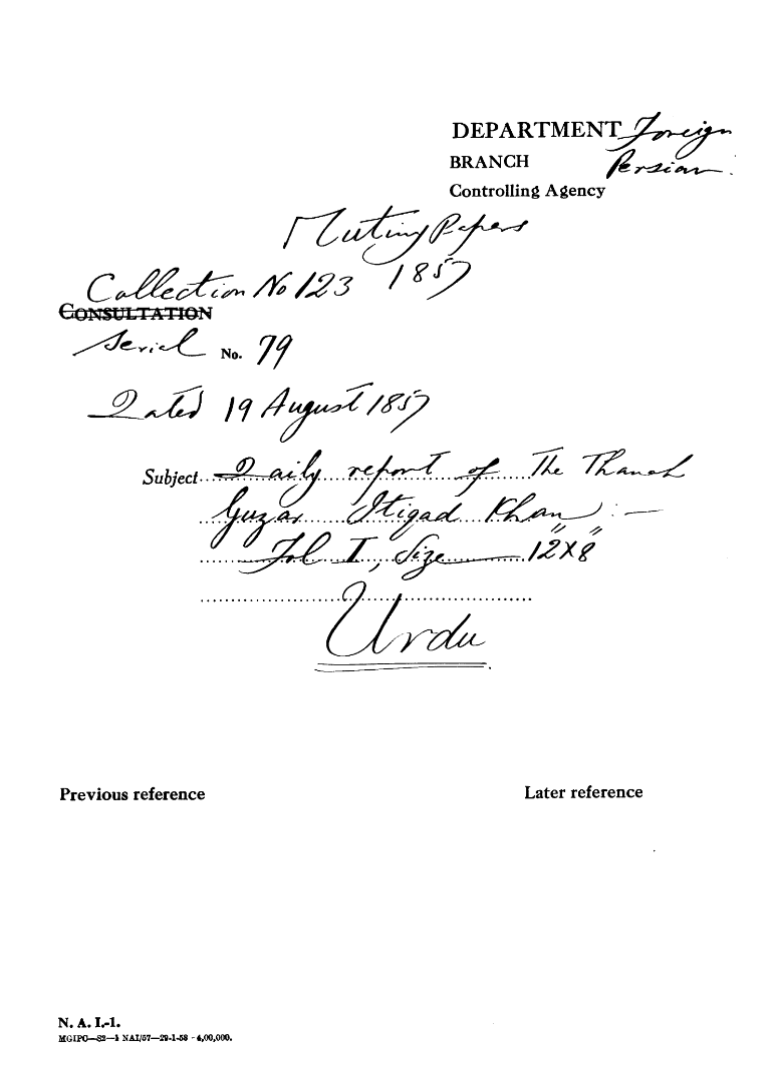 DEPARTMENT Foreign
BRANCH Persian
Controlling Agency
Mutiny Papers
1857
Collection No 123
CONSULTATION
Serial No. 79
Dated 19 August 1857
Subject Daily report of The Thanah
Guzar Itiqad Khan:—
Fol I, Size 12"X8"
Urdu
Previous reference Later reference
N. A. I.-1.
MGIPC—S2—1 NAI/57—29-1-58 - 4,00,000.